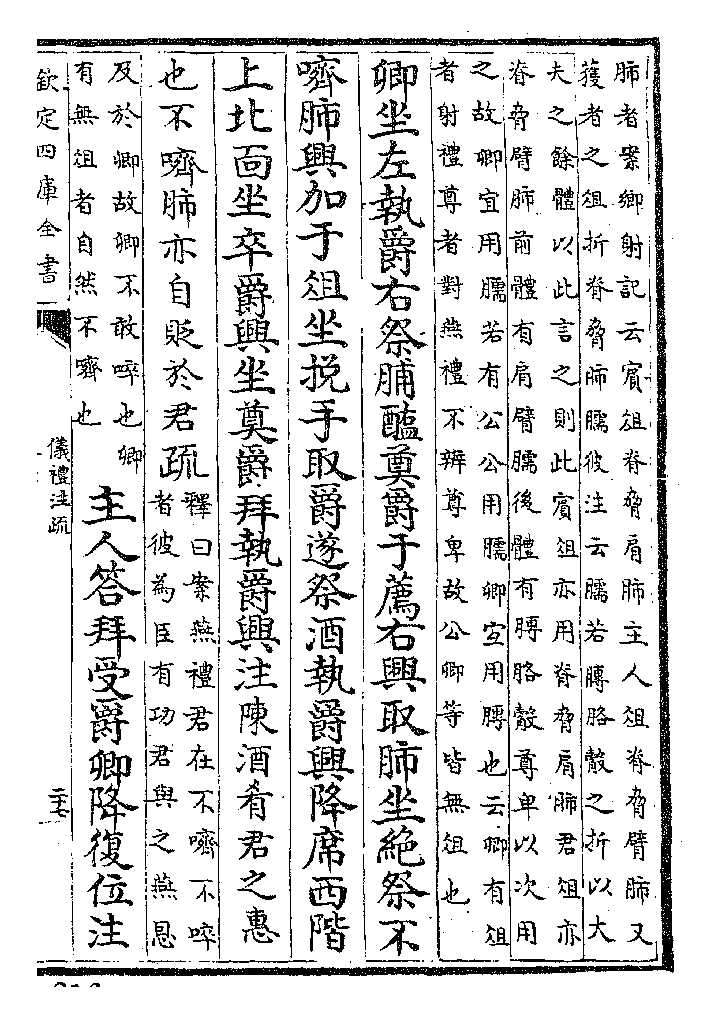 肺者案鄉射記云賓俎脊脅肩肺主人俎脊脅臂肺又
獲者之俎折脊脅肺臑彼注云臑若膊胳觳之折以大
夫之餘體以此言之則此賓俎亦用脊脅肩肺君俎亦
脊脅臂肺前體有肩臂臑後體有膊胳觳尊卑以次用
之故卿宜用臑若有公公用臑卿宜用膊也云卿有俎
者射禮尊者對燕禮不辨尊卑故公卿等皆無俎也
卿坐左執爵右祭脯醢奠爵于薦右興取肺坐絶祭不
嚌肺興加于俎坐挩手取爵遂祭酒執爵興降席西階
上北面坐卒爵興坐奠爵拜執爵興注陳酒肴君之惠
也不嚌肺亦自貶於君疏釋曰案燕禮君在不嚌不啐
者彼為臣有功君與之燕恩
及於卿故卿不敢啐也卿
有無俎者自然不嚌也
主人答拜受爵卿降復位注
欽定四庫全書
儀禮注疏
二十七